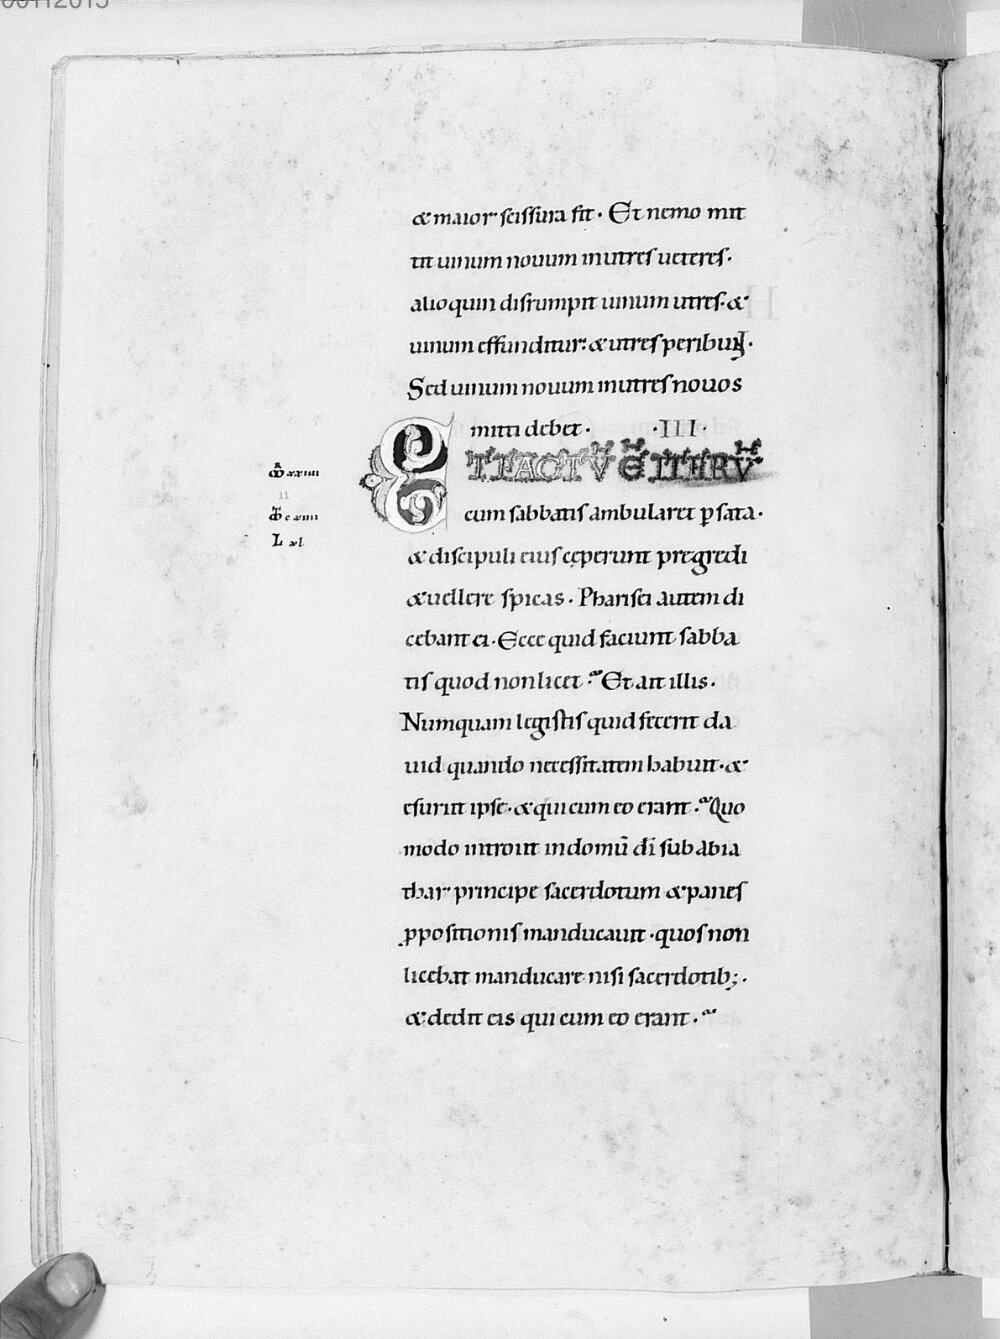 & maior scissura fit · Et nemo mit
tit uinum nouum inutres ueteres ·
alioquin disrumpit uinum utres · &
uinum effunditur : & utres peribunt ·
Sed uinum nouum inutres nouos
mitti debet · · III ·
ET FACTŪ Ē ITERŪ
cum sabbatis ambularet p sata ·
& discipuli eius cęperunt pregredi
& uellere spicas · Pharisei autem di
cebant ei · Ecce quid faciunt sabba
tis quod non licet : Et ait illis ·
Numquam legistis quid fecerit da
uid quando necessitatem habuit · &
esuriit ipse · & qui cum eo erant : Quo
modo introiit indomū dī sub abia
thar principe sacerdotum & panes
ppositionis manducauit · quos non
licebat manducare nisi sacerdotib; ·
& dedit eis qui cum eo erant ·
M xxiiii
II
M cxiiii
L xl